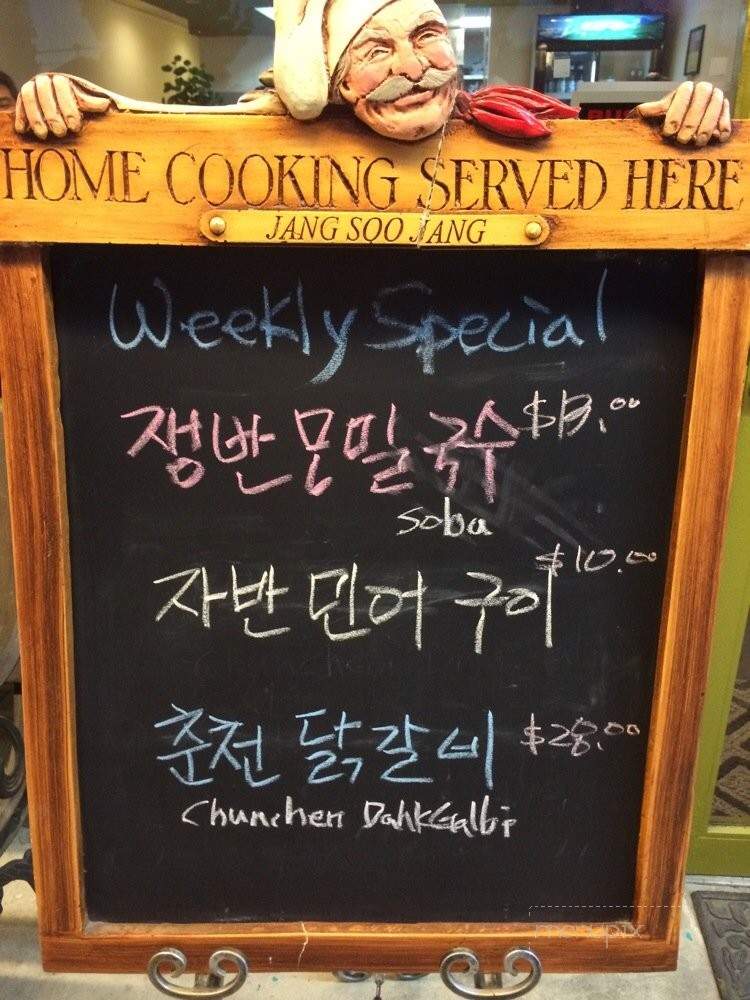 HOME COOKING SERVED HERE
JANG SOO JANG
Weekly Special
쟁반 모밀 국수 $13.00
soba
자반 민어 구이 $10.00
춘천 닭갈비 $28.00
Chunchen DahkGalbi